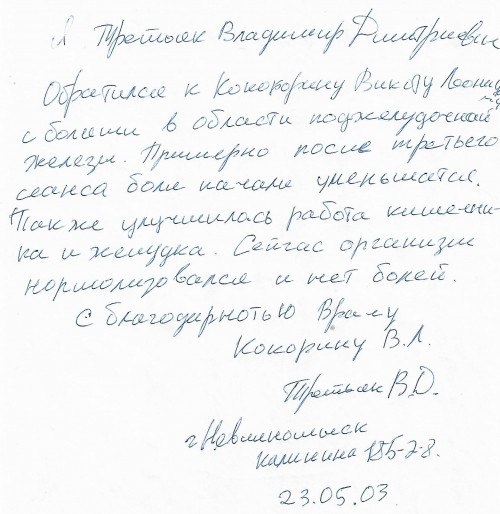 Я Третьяк Владимир Дмитриевич
Обратился к Кокорину Викту Леонид
с болями в области поджелудочной
железы. Примерно после третьего
сеанса боли начали уменьшатся.
Также улучшилась работа кишечни-
ка и желудка. Сейчас организм
нормолизовался и нет болей.
С благодарнотью Врачу
Кокорину В.Л.
Третьяк В.Д.
г. Невинномыск
калинина 185-2-8.
23.05.03.